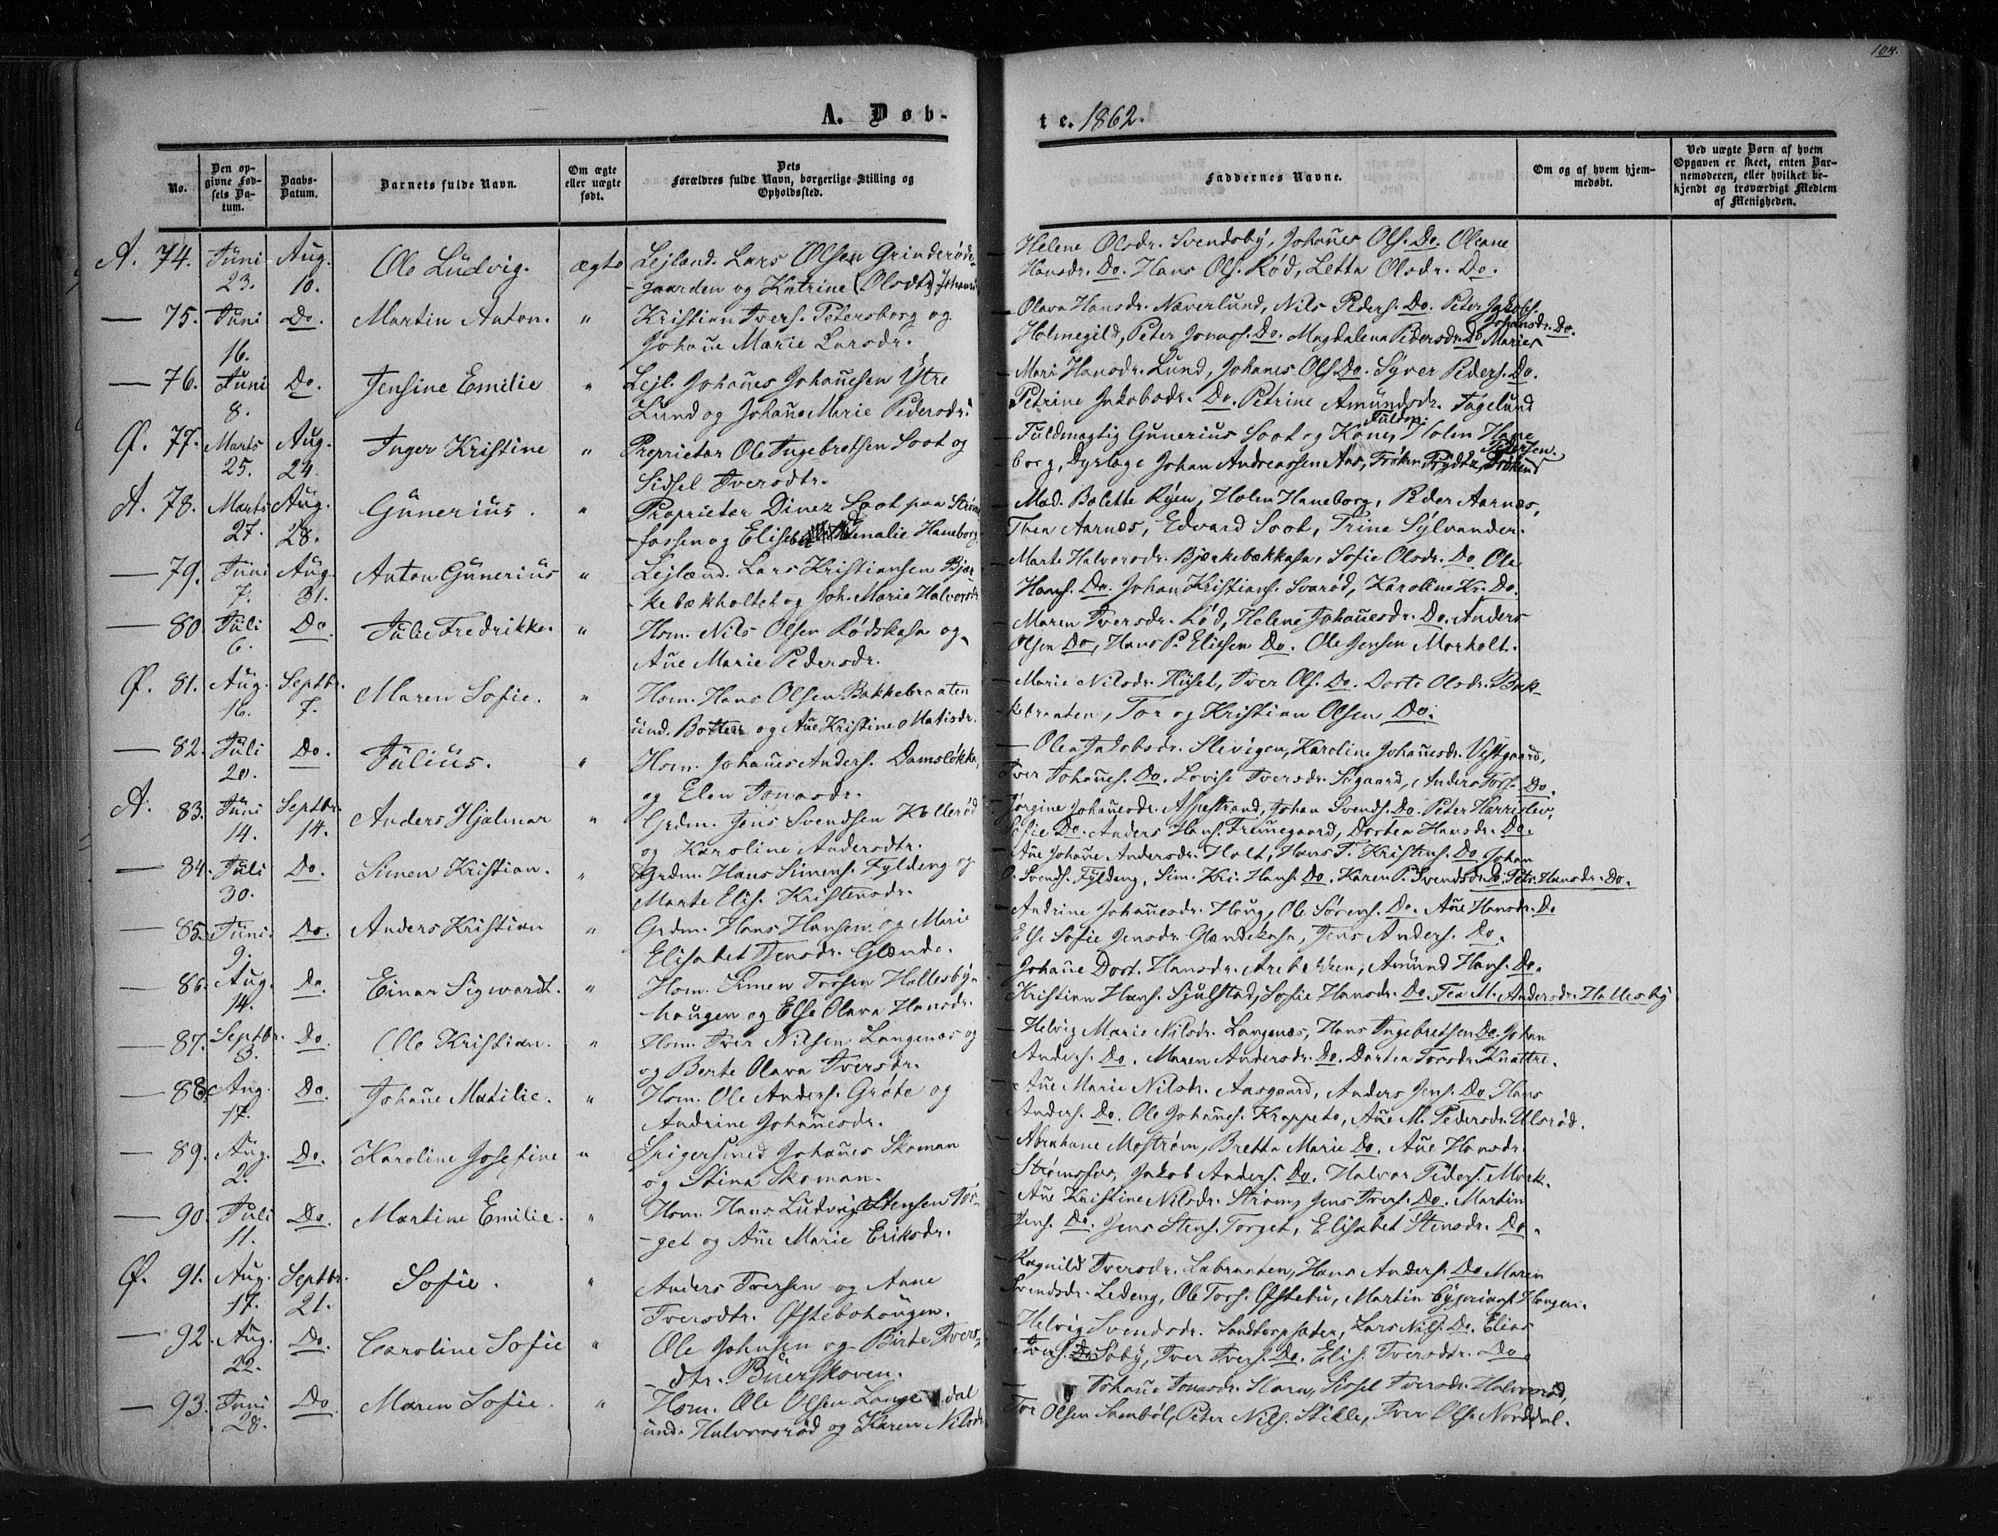 104.
A. Døb-
te. 1862.
No.
Den op-
givne Fød-
sels Da-
tum.
Daabs-
Datum.
Barnets fulde Navn.
Om ægte
eller uægte
født.
Dets
Forældres fulde Navn, borgerlige Stilling og
Opholdssted.
Faddernes Navne.
Om og af hvem hjem-
medøbt.
Ved uægte Børn af hvem
Opgaven er skeet, enten Bar-
nemoderen, eller hvilket be-
kjendt og troværdigt Medlem
af Menigheden.
A. 74. Juni 23. Aug. 10. Ole Ludvig. ægte Lejland. Lars Olsen Grinderøds-
gaarden og Katrine (Olsdtr)
Helene Olsdr. Svendsby, Johanes Ols. Do. Oleane
Hansdr. Do. Hans Ols. Rød, Letta Olsdr. Do.
— 75. Juni 16. Do. Martin Anton. " Kristian Ivers. Petersborg og
Johane Marie Larsdr.
Olava Hansdr. Næverlund, Nils Peders. Do. Peter Jakobs.
Holmegild, Peter Jonass. Do. Magdalena Pedersdr. Do Marie Johansdr. Do.
— 76. Juni 8. Do. Jensine Emilie " Lejl. Johanes Johanesen Ytre
Lund og Johane Marie Pedersdr.
Mari Hansdr. Lund, Johanes Ols. Do. Syver Peders. Do.
Petrine Jakobsdr. Do. Petrine Amundsdr. Fagelund
Ø. 77. Marts 25. Aug. 24. Inger Kristine " Proprietær Ole Ingebretsen Soot og
Sidsel Iversdtr.
Fuldmægtig Gunerius Soot og Kone,
borg, Dyrlæge Johan Andreassen Aas, Frøken
A. 78. Marts 27. Aug. 28. Gunerius. " Proprietær Diner Soot paa Strøms-
fossen og Elise Amalie Haneborg
Mad. Bolette Ryen, Holen Haneborg, Peder Aarnæs,
Thea Aarnæs, Edvard Soot, Trine Sylvander.
— 79. Juni 7. Aug. 31. Anton Gunerius " Lejlænd. Lars Kristiansen Bjær-
kebækholtet og Joh. Marie Halvorsdr.
Marte Halvorsdr. Bjerkebækkasa, Sofie Olsdr. Do Ole
Hans. Do. Johan Kristians. Svarød, Karoline Kr. Do.
— 80. Juli 6. Do Julie Fredrikke. " Hsm. Nils Olsen Rødskasa og
Ane Marie Pedersdr.
Maren Iversdr. Rød, Helene Johanesdr. Do. Anders
Olsen Do, Hans P. Eliesen Do. Ole Jensen Morholt.
Ø. 81. Aug. 16. Septbr. 7. Maren Sofie. " Hsm. Hans Olsen Bakkebraaten
und. Botten og Ane Kristine Matisdr.
Marie Nilsdr. Huset, Iver Ols. Do. Dorte Olsdr. Bak-
kebraaten, Tor og Kristian Olsen Do.
— 82. Juli 20. Do. Julius. " Hsm. Johanes Anders. Damsløkka,
og Elen Jonasdr.
— Olea Jakobsdr. Slevigen, Karoline Johanesdr. Vestgaard,
Iver Johanes. Do. Lovise Iversdr. Sogaard, Anders Tors. Do.
A. 83. Juni 14. Septbr. 14. Anders Hjalmar " Grdm. Jens Svendsen Kollerød
og Karoline Andersdtr.
Jørgine Johanesdr. Aspestrand, Johan Svends. Do. Peter Harreslev,
Sofie Do. Anders Hans. Fremegaard, Dortea Hansdr. Do.
— 84. Juli 30. Do. Simen Kristian. " Grdm. Hans Simens. Fyldeng og
Marte Elis. Kristensdr.
Ane Johane Andersdr. Holt, Hans T. Kristens. Do. Johan
O. Svends. Fyldeng, Sim. Kri. Hans. Do. Karen P. Svendsdr. Do. Petr. Hansdr. Do.
— 85. Juni 9. Do. Anders Kristian " Grdm. Hans Hansen og Marie
Elisabet Jensdr. Glænde.
Andrine Johanesdr. Haug, Ole Sørens. Do. Ane Hansdr. Do
Else Sofie Jensdr. Glændekasa, Jens Anders. Do.
— 86. Aug. 14. Do Einar Sigwardt. " Hsm. Simen Torsen Hallesby-
haugen og Else Olava Hansdr.
Johane Dort. Hansdr. Arebekken, Amund Hans. Do.
Kristian Hans. Sjulstad, Sofie Hansdr. Do. Tea M. Andersdr. Hallesby
— 87. Septbr. 3. Do. Ole Kristian. " Hsm. Iver Nilsen Langenæs og
og Berte Olava Iversdr.
Helvig Marie Nilsdr. Langenæs, Hans Ingebretsen Do. Johan
Anders. Do. Maren Andersdr. Do. Dortea Torsdr. Knattre.
— 88. Aug. 17. Do. Johane Matilie. " Hsm. Ole Anders. Grøte og
Andrine Johanesdr.
Ane Marie Nilsdr. Aasgaard, Anders Jens. Do. Hans
Anders. Do. Ole Johanes. Kroppeto, Ane M. Pedersdr. Ulsrød.
— 89. Aug. 2. Do. Karoline Josefine " Spigersmed Johanes Skoman
og Stina Skoman.
Abrahane Mostrøm, Bretta Marie Do. Ane Hansdr.
Strømsfos, Jakob Anders. Do. Halvor Peders. Mork.
— 90. Juli 11. Do. Martine Emilie. " Hsm. Hans Ludvig Stensen Tor-
get og Ane Marie Eriksdr.
Ane Kristine Nilsdr. Strøm, Jens Ivers. Do. Martin
Jens. Do. Jens Stens. Torget, Elisabet Stensdr. Do.
Ø. 91. Aug. 17. Septbr. 21. Sofie. " Anders Iversen og Anne
Iversdtr. Østebøhaugen.
Ragnild Iversdr. Labraaten, Hans Anders. Do Maren
Svendsdr. Ledeng, Ole Tors. Østebu, Martin Cyprians. Haugen.
— 92. Aug. 22. Do. Caroline Sofie " Ole Johnsen og Birte Ivers-
dtr. Buerskoven.
Helvig Svendsdr. Sandtorpsæter, Lars Nils. Do. Elias
Ivers. Søby, Iver Ivers. Do. Elis. Iversdtr. Do.
— 93. Juni 28. Do Maren Sofie. " Hsm. Ole Olsen Langedal
und. Halvorsrød og Karen Nilsdr
— Johane Jonasdr. Skaru, Sissel Iversdr. Halvorsrød,
Tor Olsen Sambøl, Peter Nils. Stille, Iver Ols. Norddal.